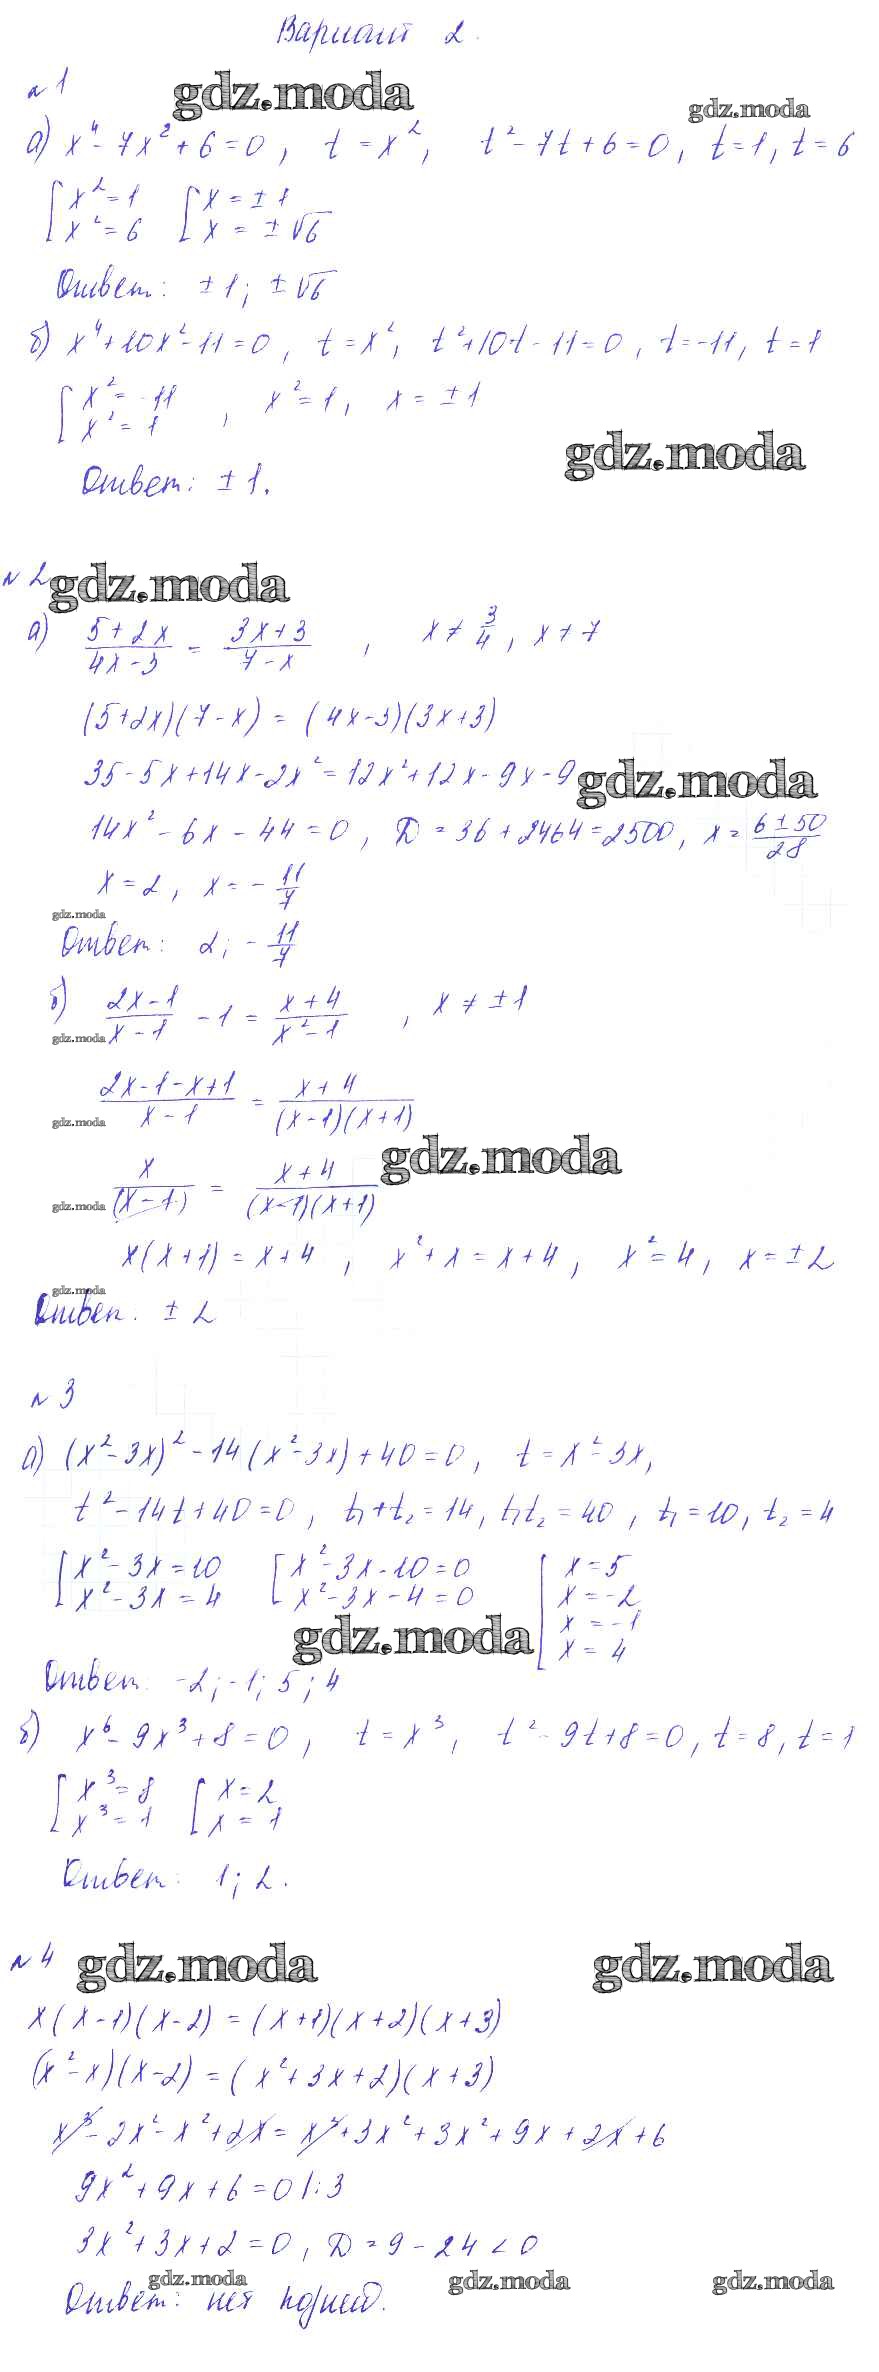 Вариант 2.
№1 gdz.moda gdz.moda
а) x⁴ - 7x² + 6 = 0, t = x², t² - 7t + 6 = 0, t = 1, t = 6
[x² = 1 [x = ±1
x² = 6 x = ±√6
Ответ: ±1; ±√6
б) x⁴ + 10x² - 11 = 0, t = x², t² + 10t - 11 = 0, t = -11, t = 1
[x² = -11
x² = 1, x² = 1, x = ±1
gdz.moda
Ответ: ±1.
№2 gdz.moda
а) (5+2x)/(4x-3) = (3x+3)/(7-x), x ≠ 3/4, x ≠ 7
(5+2x)(7-x) = (4x-3)(3x+3)
35 - 5x + 14x - 2x² = 12x² + 12x - 9x - 9 gdz.moda
14x² - 6x - 44 = 0, D = 36 + 2464 = 2500, x = (6±50)/28
x = 2, x = -11/7
gdz.moda
Ответ: 2; -11/7
б) (2x-1)/(x-1) - 1 = (x+4)/(x²-1), x ≠ ±1
gdz.moda
(2x-1-x+1)/(x-1) = (x+4)/((x-1)(x+1))
gdz.moda
x/(x-1) = (x+4)/((x-1)(x+1)) gdz.moda
gdz.moda
x(x+1) = x+4, x² + x = x+4, x² = 4, x = ±2
gdz.moda
Ответ. ±2
№3
а) (x² - 3x)² - 14(x² - 3x) + 40 = 0, t = x² - 3x,
t² - 14t + 40 = 0, t₁ + t₂ = 14, t₁t₂ = 40, t₁ = 10, t₂ = 4
[x² - 3x = 10 [x² - 3x - 10 = 0 [x = 5
x² - 3x = 4 x² - 3x - 4 = 0 x = -2
gdz.moda x = -1
x = 4
Ответ: -2; -1; 5; 4
б) x⁶ - 9x³ + 8 = 0, t = x³, t² - 9t + 8 = 0, t = 8, t = 1
[x³ = 8 [x = 2
x³ = 1 x = 1
Ответ: 1; 2.
№4 gdz.moda gdz.moda
x(x-1)(x-2) = (x+1)(x+2)(x+3)
(x² - x)(x-2) = (x² + 3x + 2)(x+3)
x³ - 2x² - x² + 2x = x³ + 3x² + 3x² + 9x + 2x + 6
9x² + 9x + 6 = 0 |:3
3x² + 3x + 2 = 0, D = 9 - 24 < 0
gdz.moda gdz.moda gdz.moda
Ответ: нет корней.